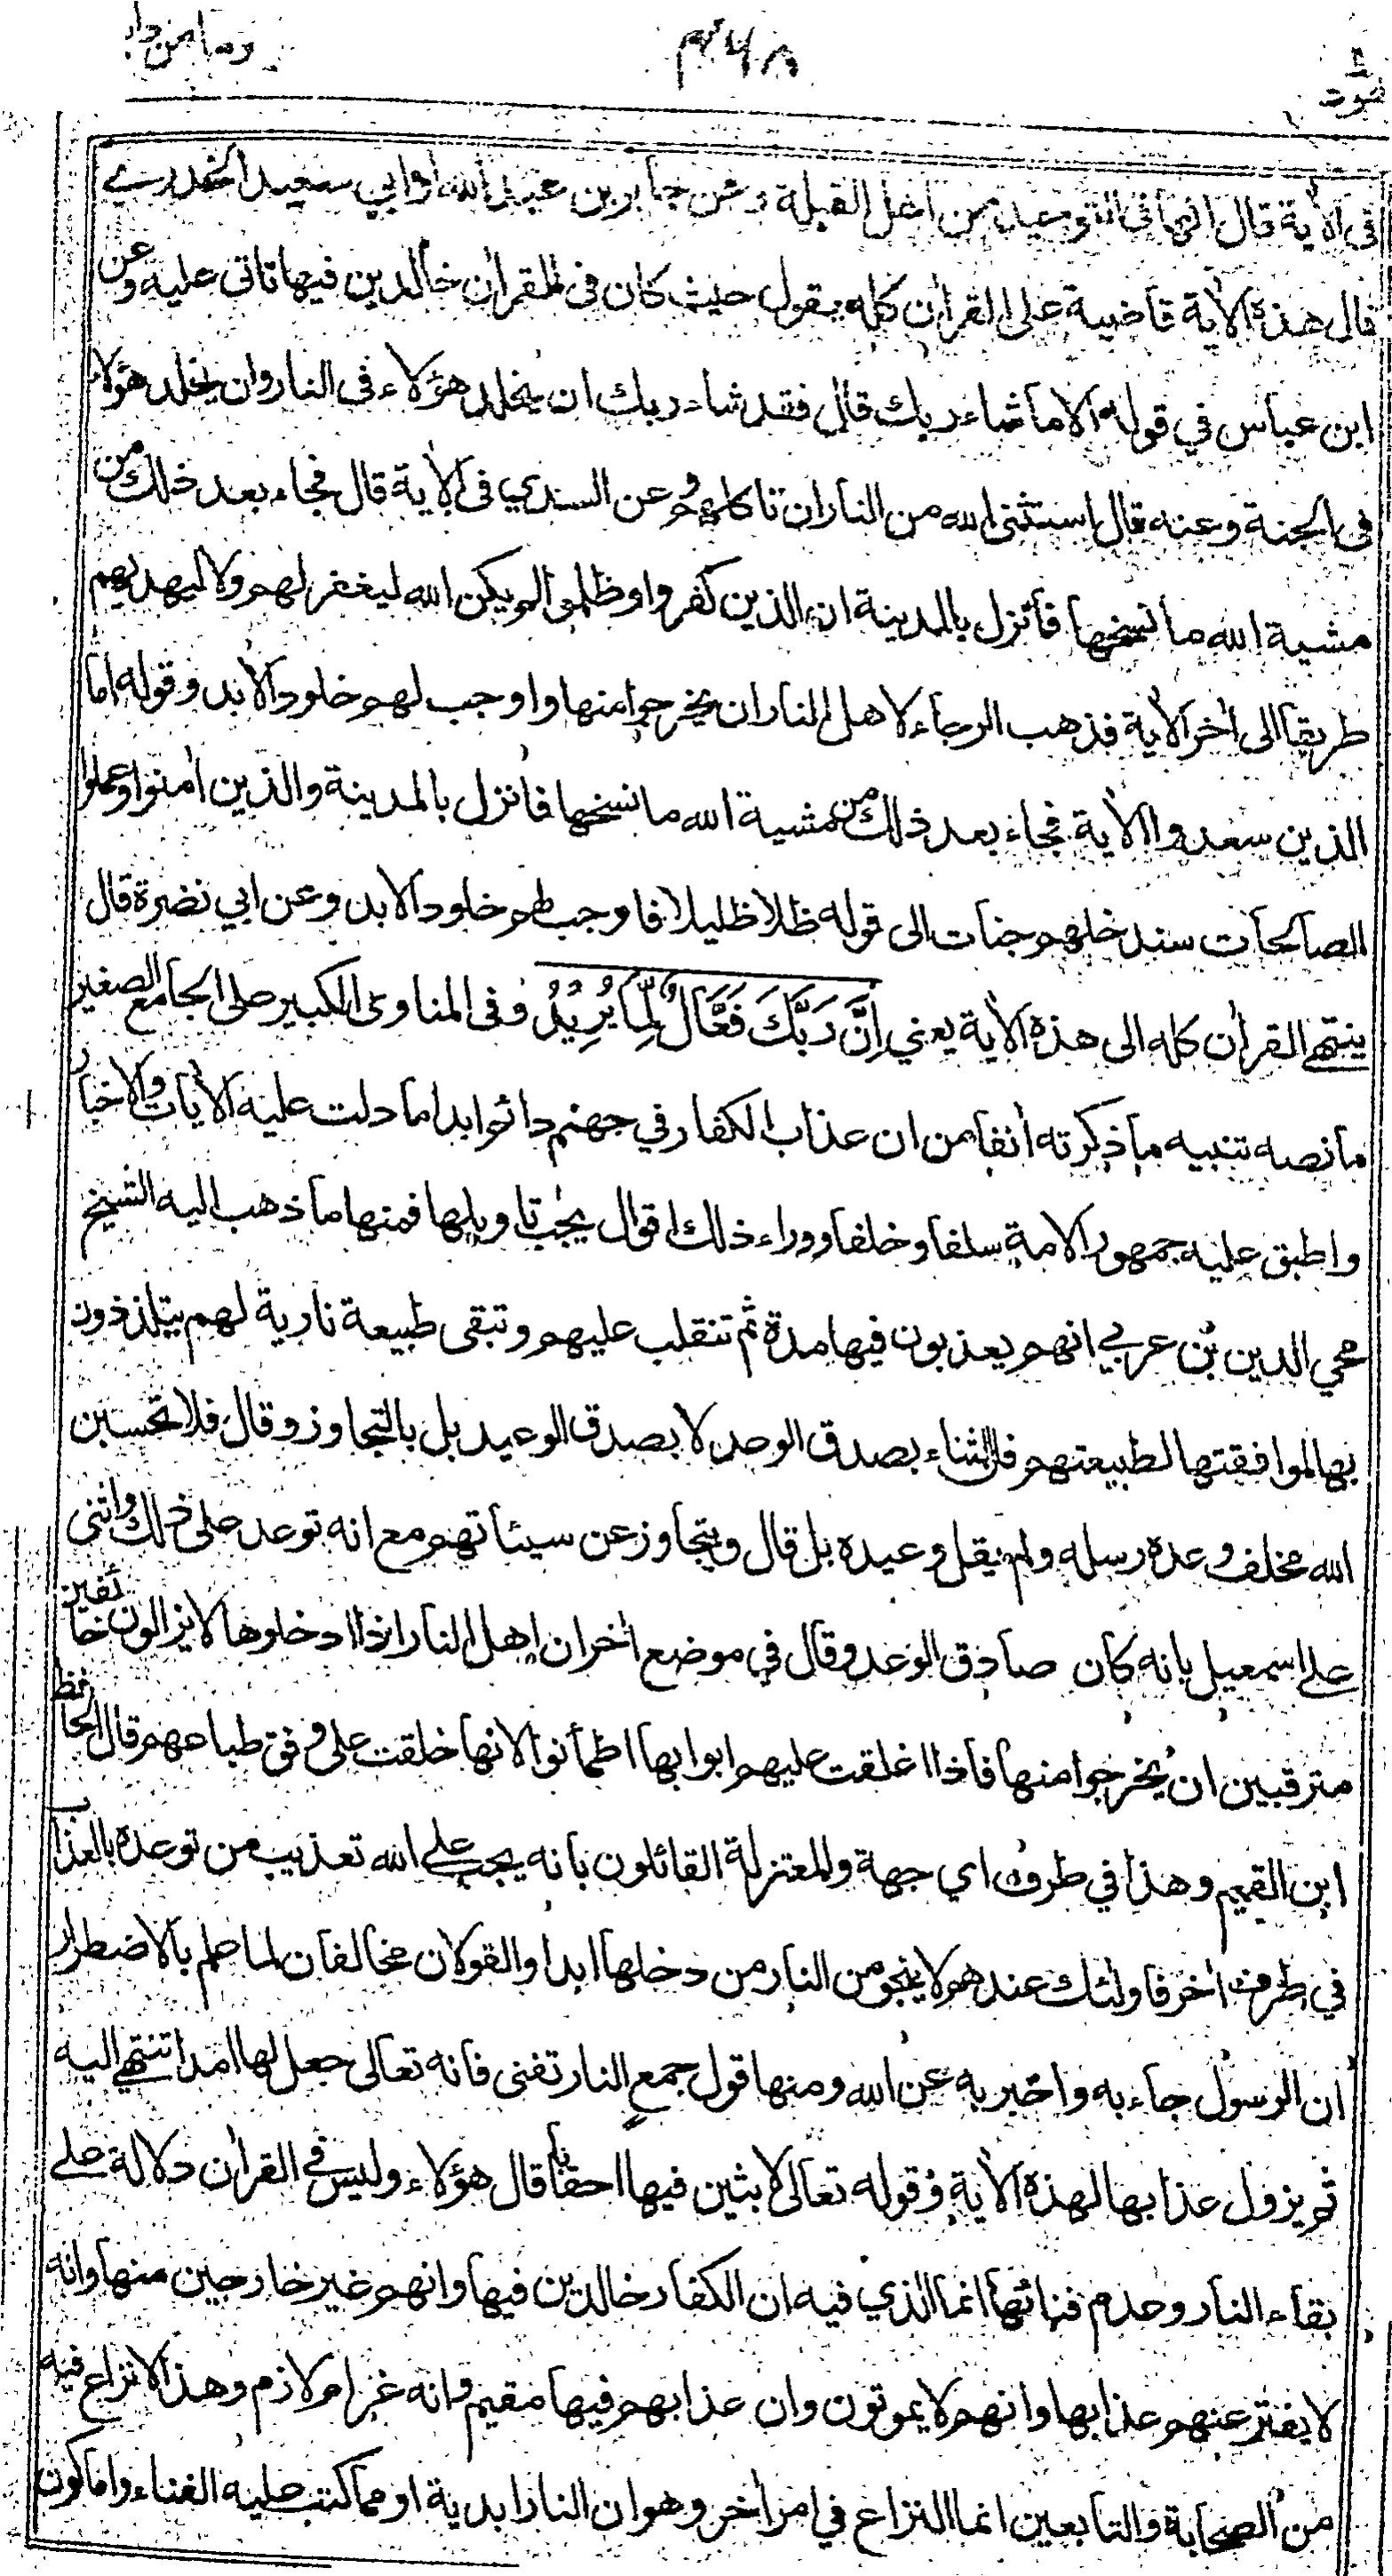 هود
٣٦٨
وما من دابة
فى الآية قال انها فى التوحيد من اهل القبلة وعن جابر بن عبد الله او ابي سعيد الخدرے
قال هذه الآية قاضية على القرآن كله يقول حيث كان فى القرآن خالدين فيها تاتى عليه وعن
ابن عباس في قوله الا ما شاء ربك قال فقد شاء ربك ان يخلد هؤلاء فى النار وان يخلد هؤلاء
فى الجنة وعنه قال استثنى الله من النار ان تاكلهم وعن السدي فى الآية قال فجاء بعد ذلك من
مشية الله ما نسخها فأنزل بالمدينة ان الذين كفروا وظلموا لم يكن الله ليغفر لهم ولا ليهديهم
طريقا الى اٰخر الآية فذهب الرجاء لاهل النار ان يخرجوا منها واوجب لهم خلود الأبد وقوله اما
الذين سعدوا الآية فجاء بعد ذلك من مشية الله ما نسخها فأنزل بالمدينة والذين اٰمنوا وعملوا
الصالحات سندخلهم جنات الى قوله ظلا ظليلا فاوجب لهم خلود الابد وعن ابي نضرة قال
ينتهے القرآن كله الى هذه الآية يعني اِنَّ رَبَّكَ فَعَّالٌ لِّمَا يُرِيْدُ وفى المناوى الكبير على الجامع الصغير
ما نصه تنبيه ما ذكرته اٰنفا من ان عذاب الكفار في جهنم دائم ابدا ما دلت عليه الآيات والاخبار
واطبق عليه جمهور الامة سلفا وخلفا ووراء ذلك اقوال يجب تاويلها فمنها ما ذهب اليه الشيخ
محي الدين بن عربي انهم يعذبون فيها مدة ثم تنقلب عليهم وتبقى طبيعة نارية لهم يتلذذون
بها لموافقتها لطبيعتهم فان الثناء بصدق الوعد لا بصدق الوعيد بل بالتجاوز وقال فلا تحسبن
الله مخلف وعده رسله ولم يقل وعيده بل قال ويتجاوز عن سيئاتهم مع انه توعد على ذلك واثنى
علے اسمعيل بانه كان صادق الوعد وقال في موضع اٰخر ان اهل النار اذا ادخلوها لا يزالون خائفين
مترقبين ان يخرجوا منها فاذا اغلقت عليهم ابوابها اطمأنوا لانها خلقت على وفق طباعهم قال الحافظ
ابن القيم وهذا في طرف اي جهة والمعتزلة القائلون بانه يجب علے الله تعذيب من توعده بالعذاب
في طرف اٰخر فاولئك عندهم لا ينجو من النار من دخلها ابدا والقولان مخالفان لما علم بالاضطرار
ان الرسول جاء به واخبر به عن الله ومنها قول جمع النار تفنى فانه تعالى جعل لها امدا تنتهے اليه
ثم يزول عذابها لهذه الآية وقوله تعالى لابثين فيها احقابا قال هؤلاء وليس فے القرآن دلالة علے
بقاء النار وعدم فنائها انما الذي فيه ان الكفار خالدين فيها وانهم غير خارجين منها وانه
لا يفتر عنهم عذابها وانهم لا يموتون وان عذابهم فيها مقيم وانه غرام لازم وهذا لا نزاع فيه
من الصحابة والتابعين انما النزاع في امر اٰخر وهو ان النار ابدية او مما كتب عليه الفناء واما كون